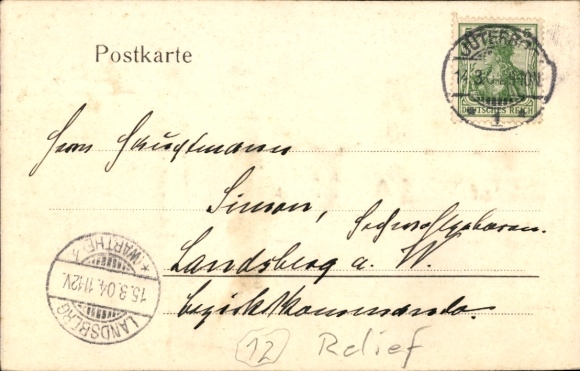 Postkarte
JÜTERBOG
14.3.
DEUTSCHES REICH
* 1 *
Herrn Hauptmann
Simon, Hochwohlgeboren.
Landsberg a. W.
Bezirkskommando.
LANDSBERG
15.3.04.11-12V.
* (WARTHE)
12 Relief